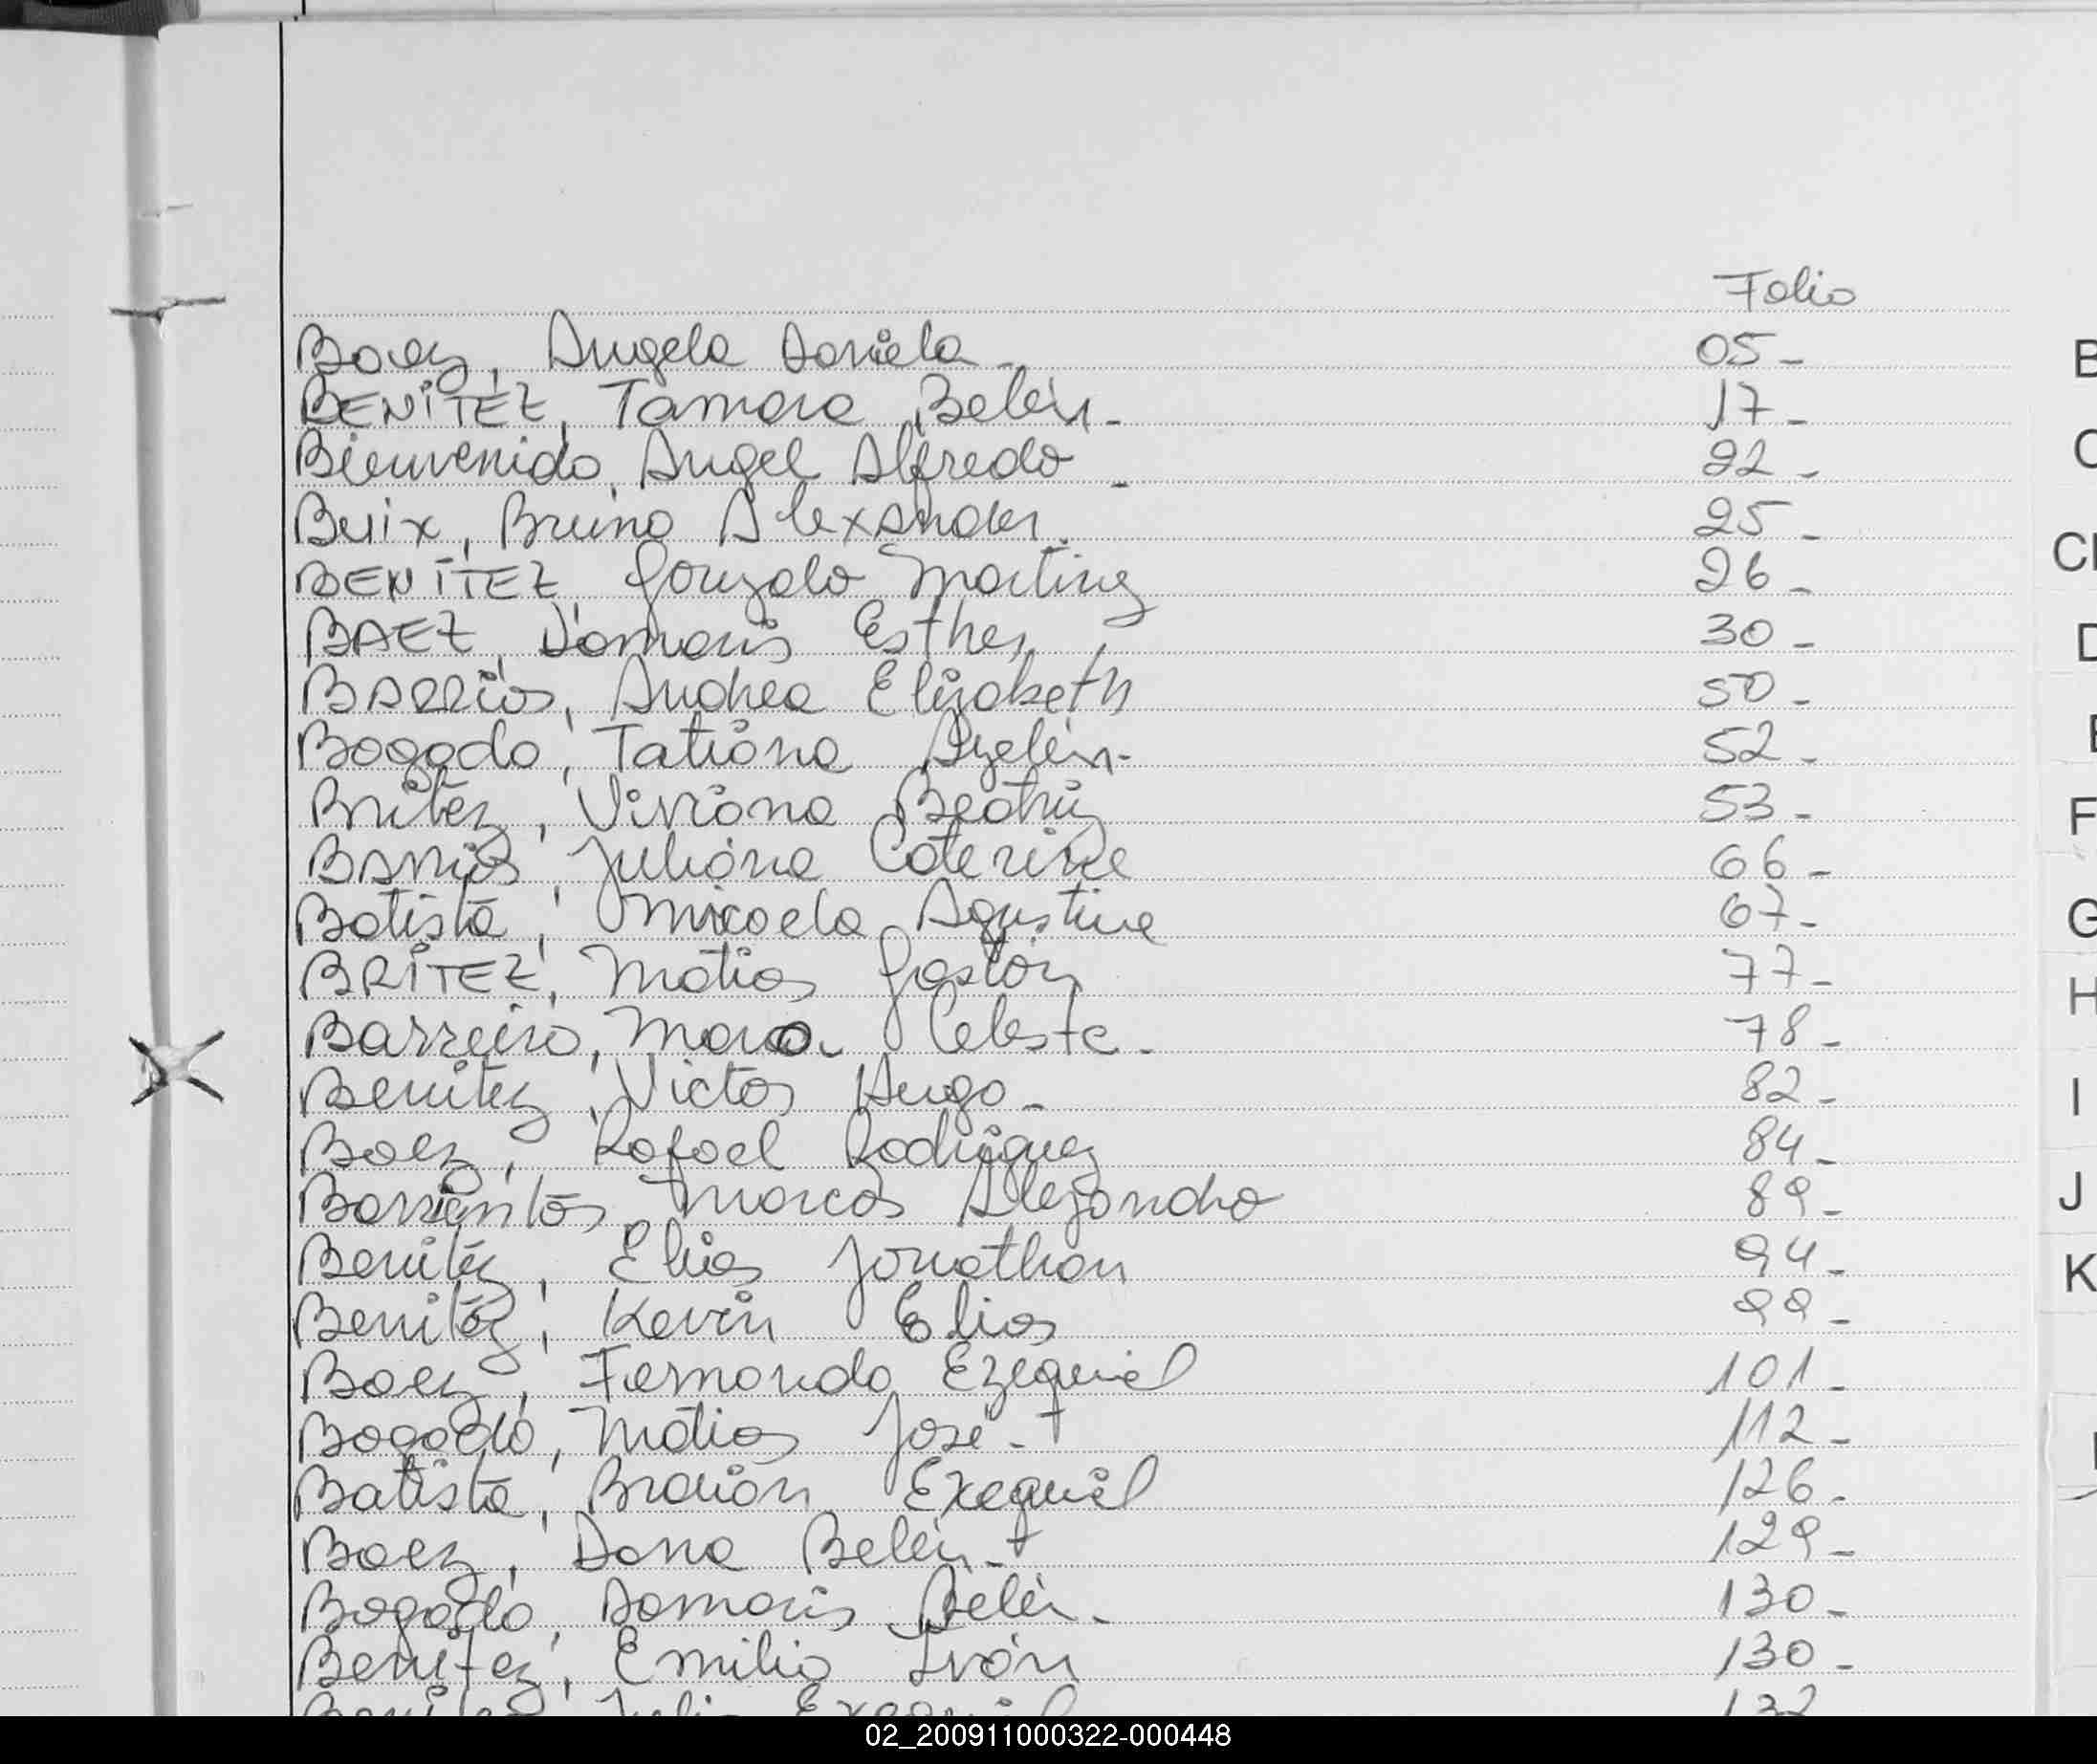 Folio
Baez, Angela Daniela - 05 -
BENITEZ, Tamara Belén - 17 -
Bienvenido, Angel Alfredo - 22 -
Buix, Bruno Alexander. 25 -
BENITEZ, Gonzalo Martinez 26 -
BAEZ, Damaris Esther 30 -
BARRios, Andrea Elizabeth 50 -
Bogado, Tatiana Ayelén - 52 -
Britez, Viviana Beatriz 53 -
BARRios, Juliana Caterine 66 -
Batista, Micaela Agustina 67 -
BRITEZ, Matias Gastón 77 -
Barreiro, Mara Celeste - 78 -
Benitez, Victor Hugo - 82 -
Baez, Rafael Rodriguez 84 -
Barrientos, Marcos Alejandro 89 -
Benitez, Elias Jonathan 94 -
Benitez, Kevin Elias 99 -
Baez, Fernando Ezequiel 101 -
Bogado, Matias José - 112 -
Batista, Braian Exequiel 126 -
Baez, Dana Belén - 129 -
Bogado, Damaris Belén - 130 -
Benitez, Emilio Iván 130 -
132
B
C
D
F
G
H
I
J
K
02_200911000322-000448